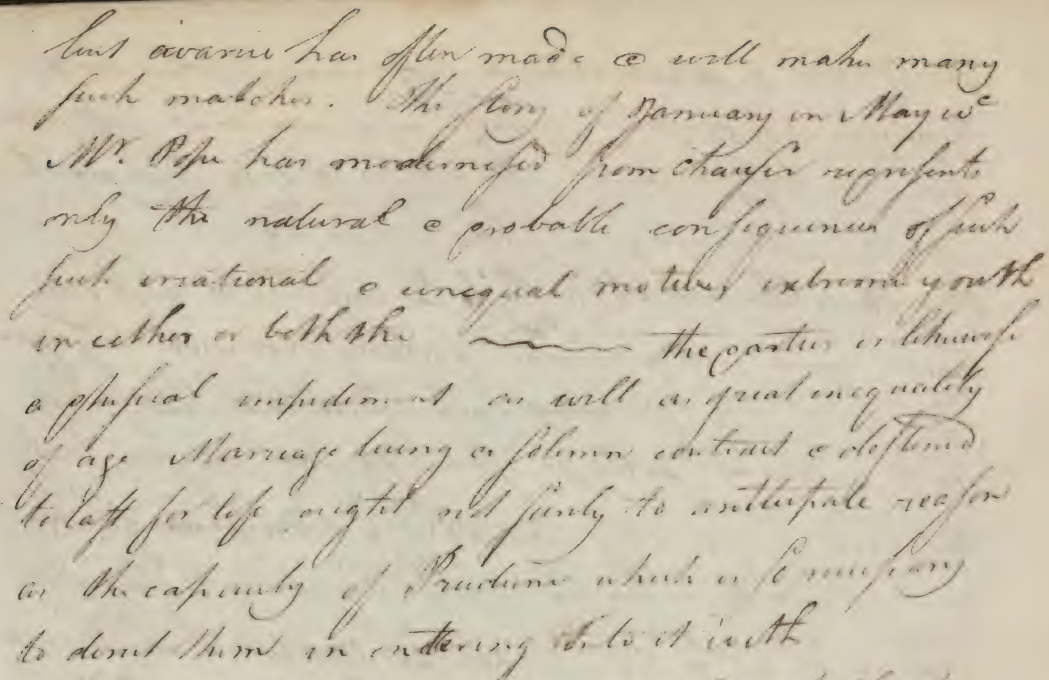 but avarice has often made & will make many
such matches. The story of January on May wc
Mr. Pope has modernised from Chauser represents
only the natural & probable consequences of such
such irrational & unequal motives extreme youth
in either or both the the parties is likewise
a phisical impediment as well as great inequality
of age Marriage being a solemn contract & destined
to last for life ought not surely to anticipate reason
or the capacity of Prudence which is so necessary
to direct them in entering into it with